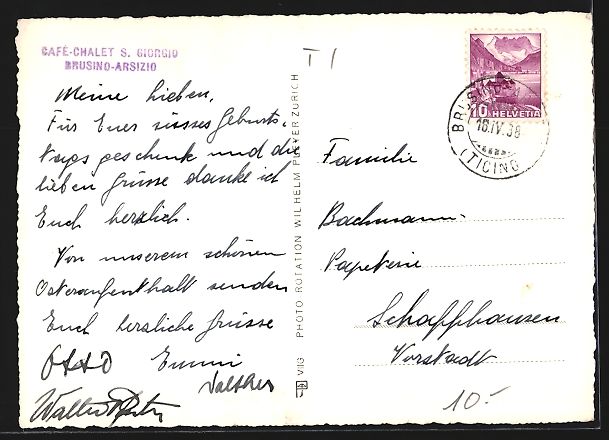 CAFÉ-CHALET S. GIORGIO
BRUSINO-ARSIZIO
Meine Lieben,
Für Euer süsses Geburts-
tags geschenk und die
lieben Grüsse danke ich
Euch herzlich.
Von unserem schönen
Osteraufenthalt senden
Euch herzliche Grüsse
Otto Emmi
Walther
Walter
VIG PHOTO ROTATION WILHELM PLEYER ZÜRICH
T 1
10 HELVETIA
BRUSINO
16.IV.38
(TICINO)
Familie
Bachmann
Papeterie
Schaffhausen
Vorstadt
10.-